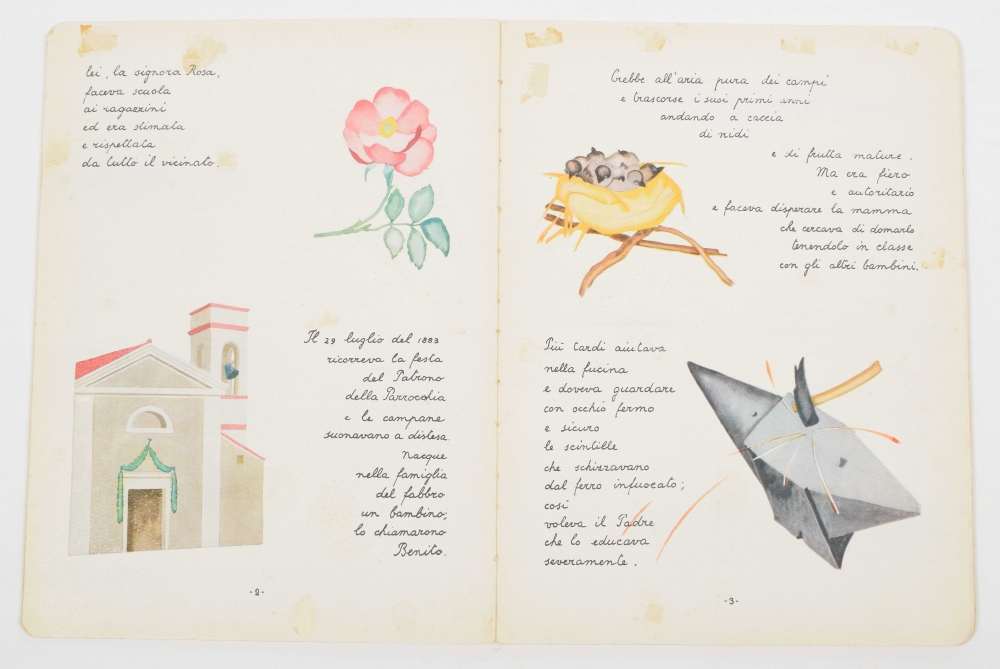 lei, la signora Rosa,
faceva scuola
ai ragazzini
ed era stimata
e rispettata
da tutto il vicinato.
Il 29 luglio del 1883
ricorreva la festa
del Patrono
della Parrocchia
e le campane
suonavano a distesa.
Nacque
nella famiglia
del fabbro
un bambino;
lo chiamarono
Benito.
-2-
Crebbe all'aria pura dei campi
e trascorse i suoi primi anni
andando a caccia
di nidi
e di frutta mature.
Ma era fiero
e autoritario
e faceva disperare la mamma
che cercava di domarlo
tenendolo in classe
con gli altri bambini.
Più tardi aiutava
nella fucina
e doveva guardare
con occhio fermo
e sicuro
le scintille
che schizzavano
dal ferro infuocato;
così
voleva il Padre
che lo educava
severamente.
-3-